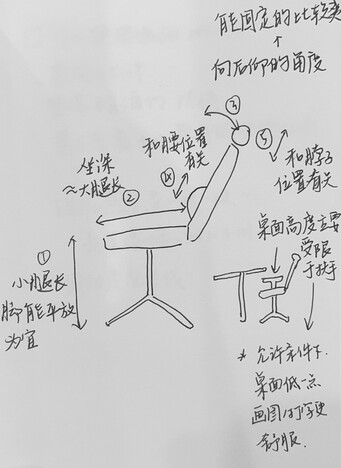 能固定的比较类
↑
向后仰的角度
③
和腰位置
有关
④
⑤
和脖子
位置有关
坐深
≈大腿长
②
①
小腿长
脚能平放
为宜
桌面高度主要
受限
于扶手
* 允许条件下.
桌面低一点
画图/打字更
舒服.